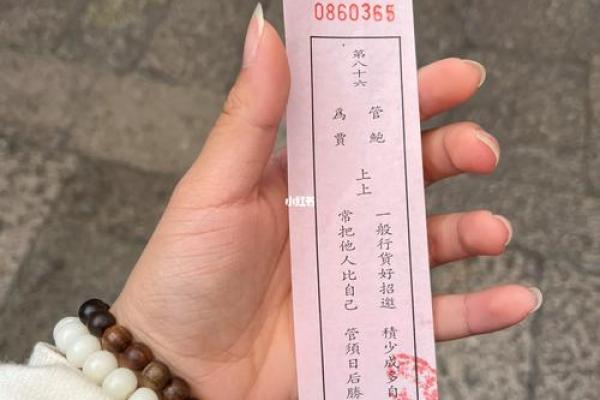 0860365
第八十六
管鮑
為賈
上上
一般行貨好招邀 積少成多自
常把他人比自己 管須日后勝
小红书